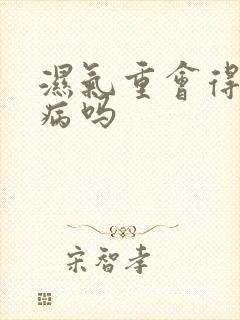 濕氣重會得
病嗎
宋智孝